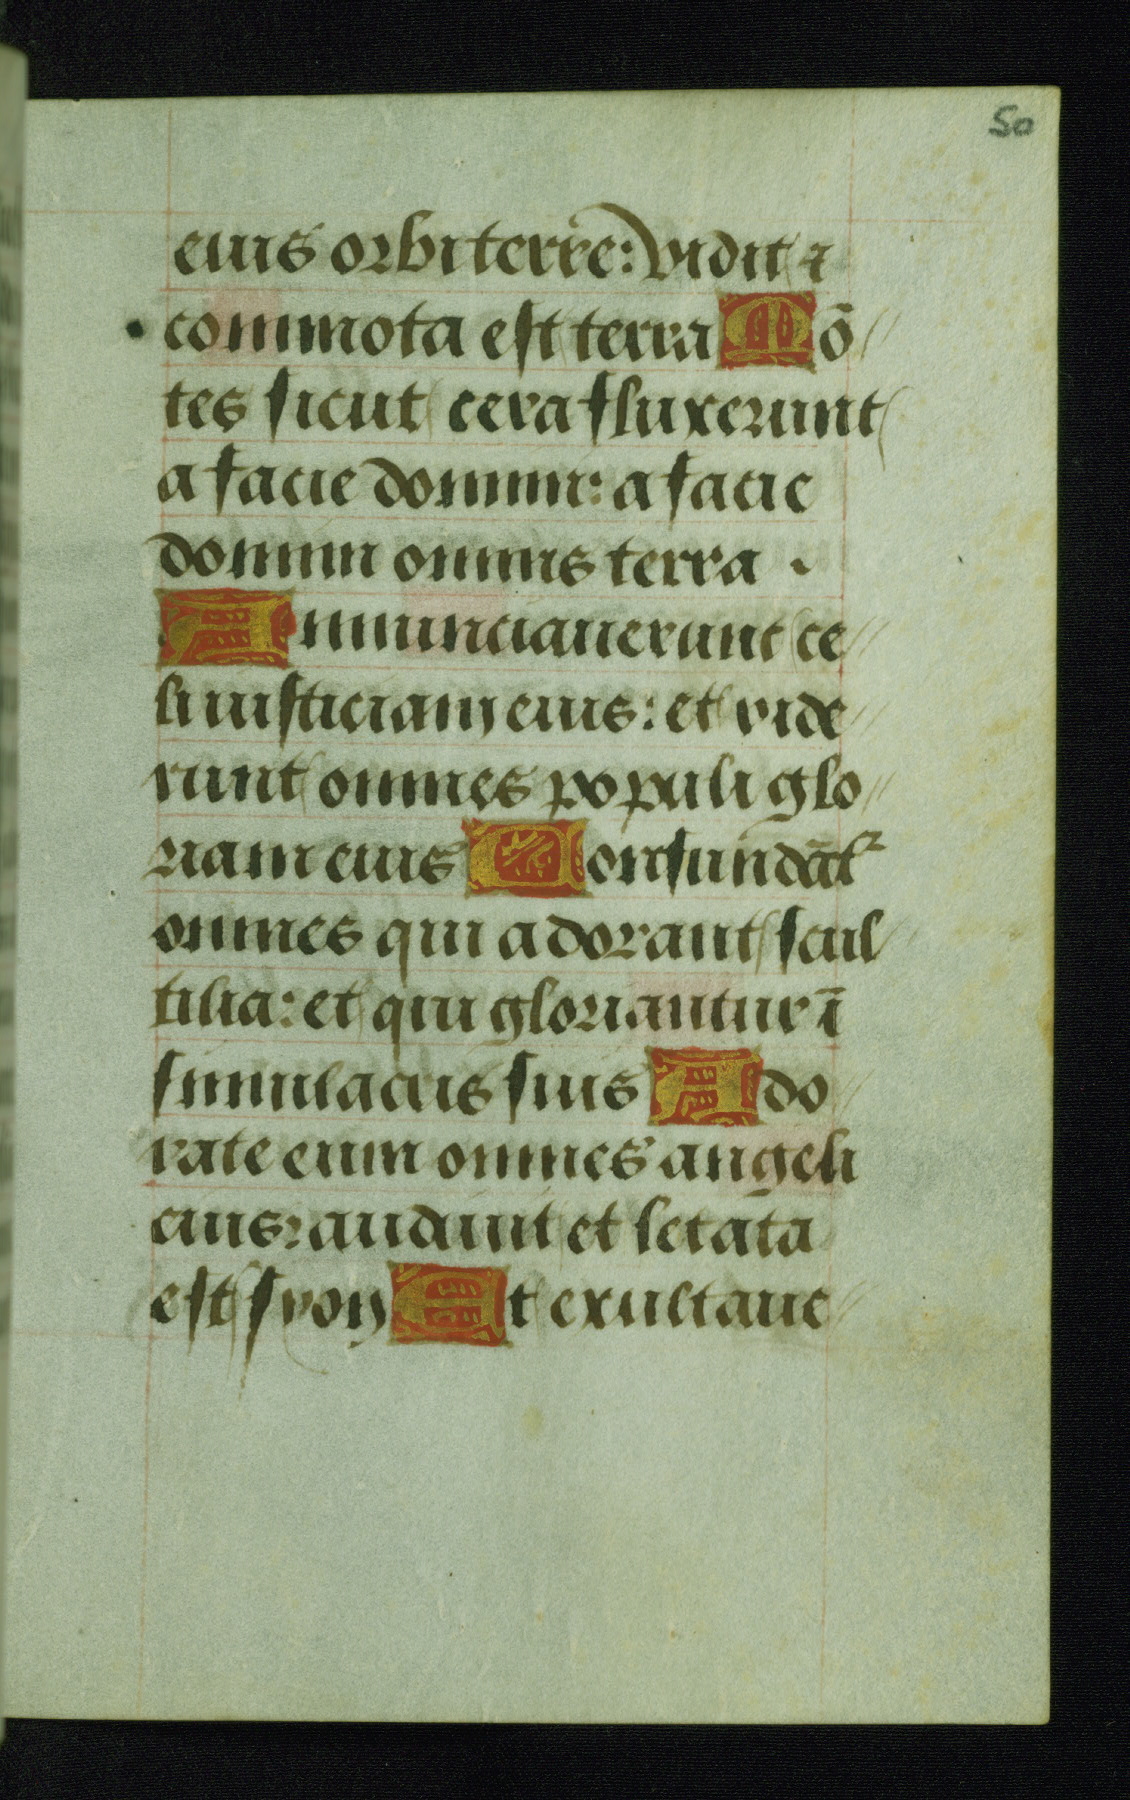 50
eius orbi terre: vidit ⁊
commota est terra Mō
tes sicut cera fluxerunt
a facie domini: a facie
domini omnis terra .
Annunciauerunt ce
li iusticiam eius: et vide
runt omnes populi glo
riam eius Confundāt᷑
omnes qui adorant scul
tilia: et qui gloriantur ī
simulacris suis Ado
rate eum omnes angeli
eius: audiuit et letata
est syon Et exultaue